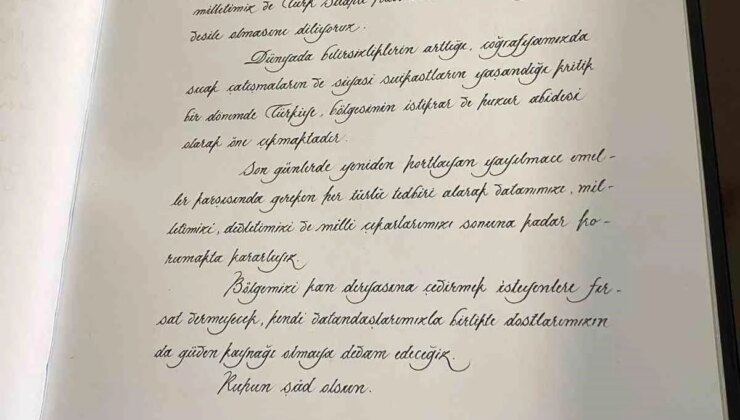 milletimiz ve Türk Silahlı
vesile olmasını diliyorum.
Dünyada belirsizliklerin arttığı, coğrafyamızda
sıcak çatışmaların ve siyasi suikastların yaşandığı kritik
bir dönemde Türkiye, bölgesinin istikrar ve huzur abidesi
olarak öne çıkmaktadır.
Son günlerde yeniden hortlayan yayılmacı emel-
ler karşısında gereken her türlü tedbiri alarak vatanımızı, mil-
letimizi, devletimizi ve milli çıkarlarımızı sonuna kadar ko-
rumakta kararlıyız.
Bölgemizi kan deryasına çevirmek isteyenlere fır-
sat vermeyecek, kendi vatandaşlarımızla birlikte dostlarımızın
da güven kaynağı olmaya devam edeceğiz.
Ruhun şâd olsun.